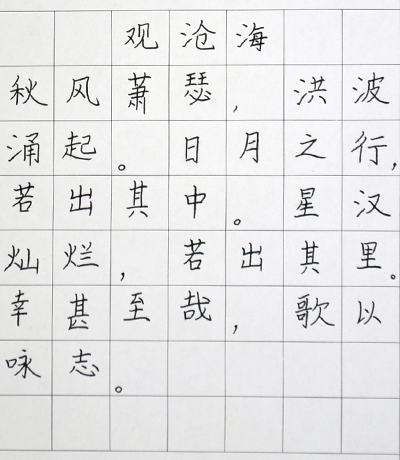 观沧海
秋风萧瑟，洪波
涌起。日月之行，
若出其中。星汉
灿烂，若出其里。
幸甚至哉，歌以
咏志。